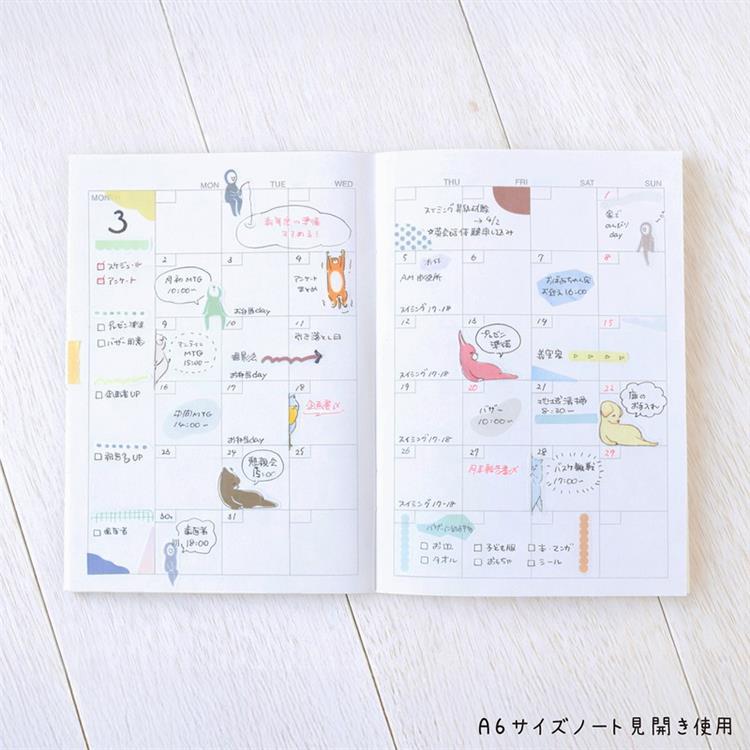 MON TUE WED
THU FRI SAT SUN
MONTH
3
新年度の準備
すすめる!
スイミング昇級試験
→4/2
☆英会話体験申し込み
1
家で
のんびり
day
スケジュール
アンケート
2
月初MTG
10:00~
3
お弁当day
4
アンケート
まとめ
5
AM 市役所
スイミング17-18
6
7
おばあちゃん家
お迎え16:00
8
プレゼン準備
バザー用意
9
オンライン
MTG
15:00~
10
お弁当day
11
引き落とし日
12
スイミング17-18
13
プレゼン
準備
14
美容室
15
企画書UP
16
中間MTG
14:00~
17
お弁当day
18
企画書〆
19
スイミング17-18
20
バザー
10:00~
21
8:30~
22
庭の
お手入れ
報告書UP
23
24
懇親会
15:00~
25
26
スイミング17-18
27
月末報告書〆
28
バスケ観戦
17:00~
29
歯医者
30
歯医者
18:00
31
お皿
タオル
子ども服
おもちゃ
本・マンガ
シール
A6サイズノート見開き使用